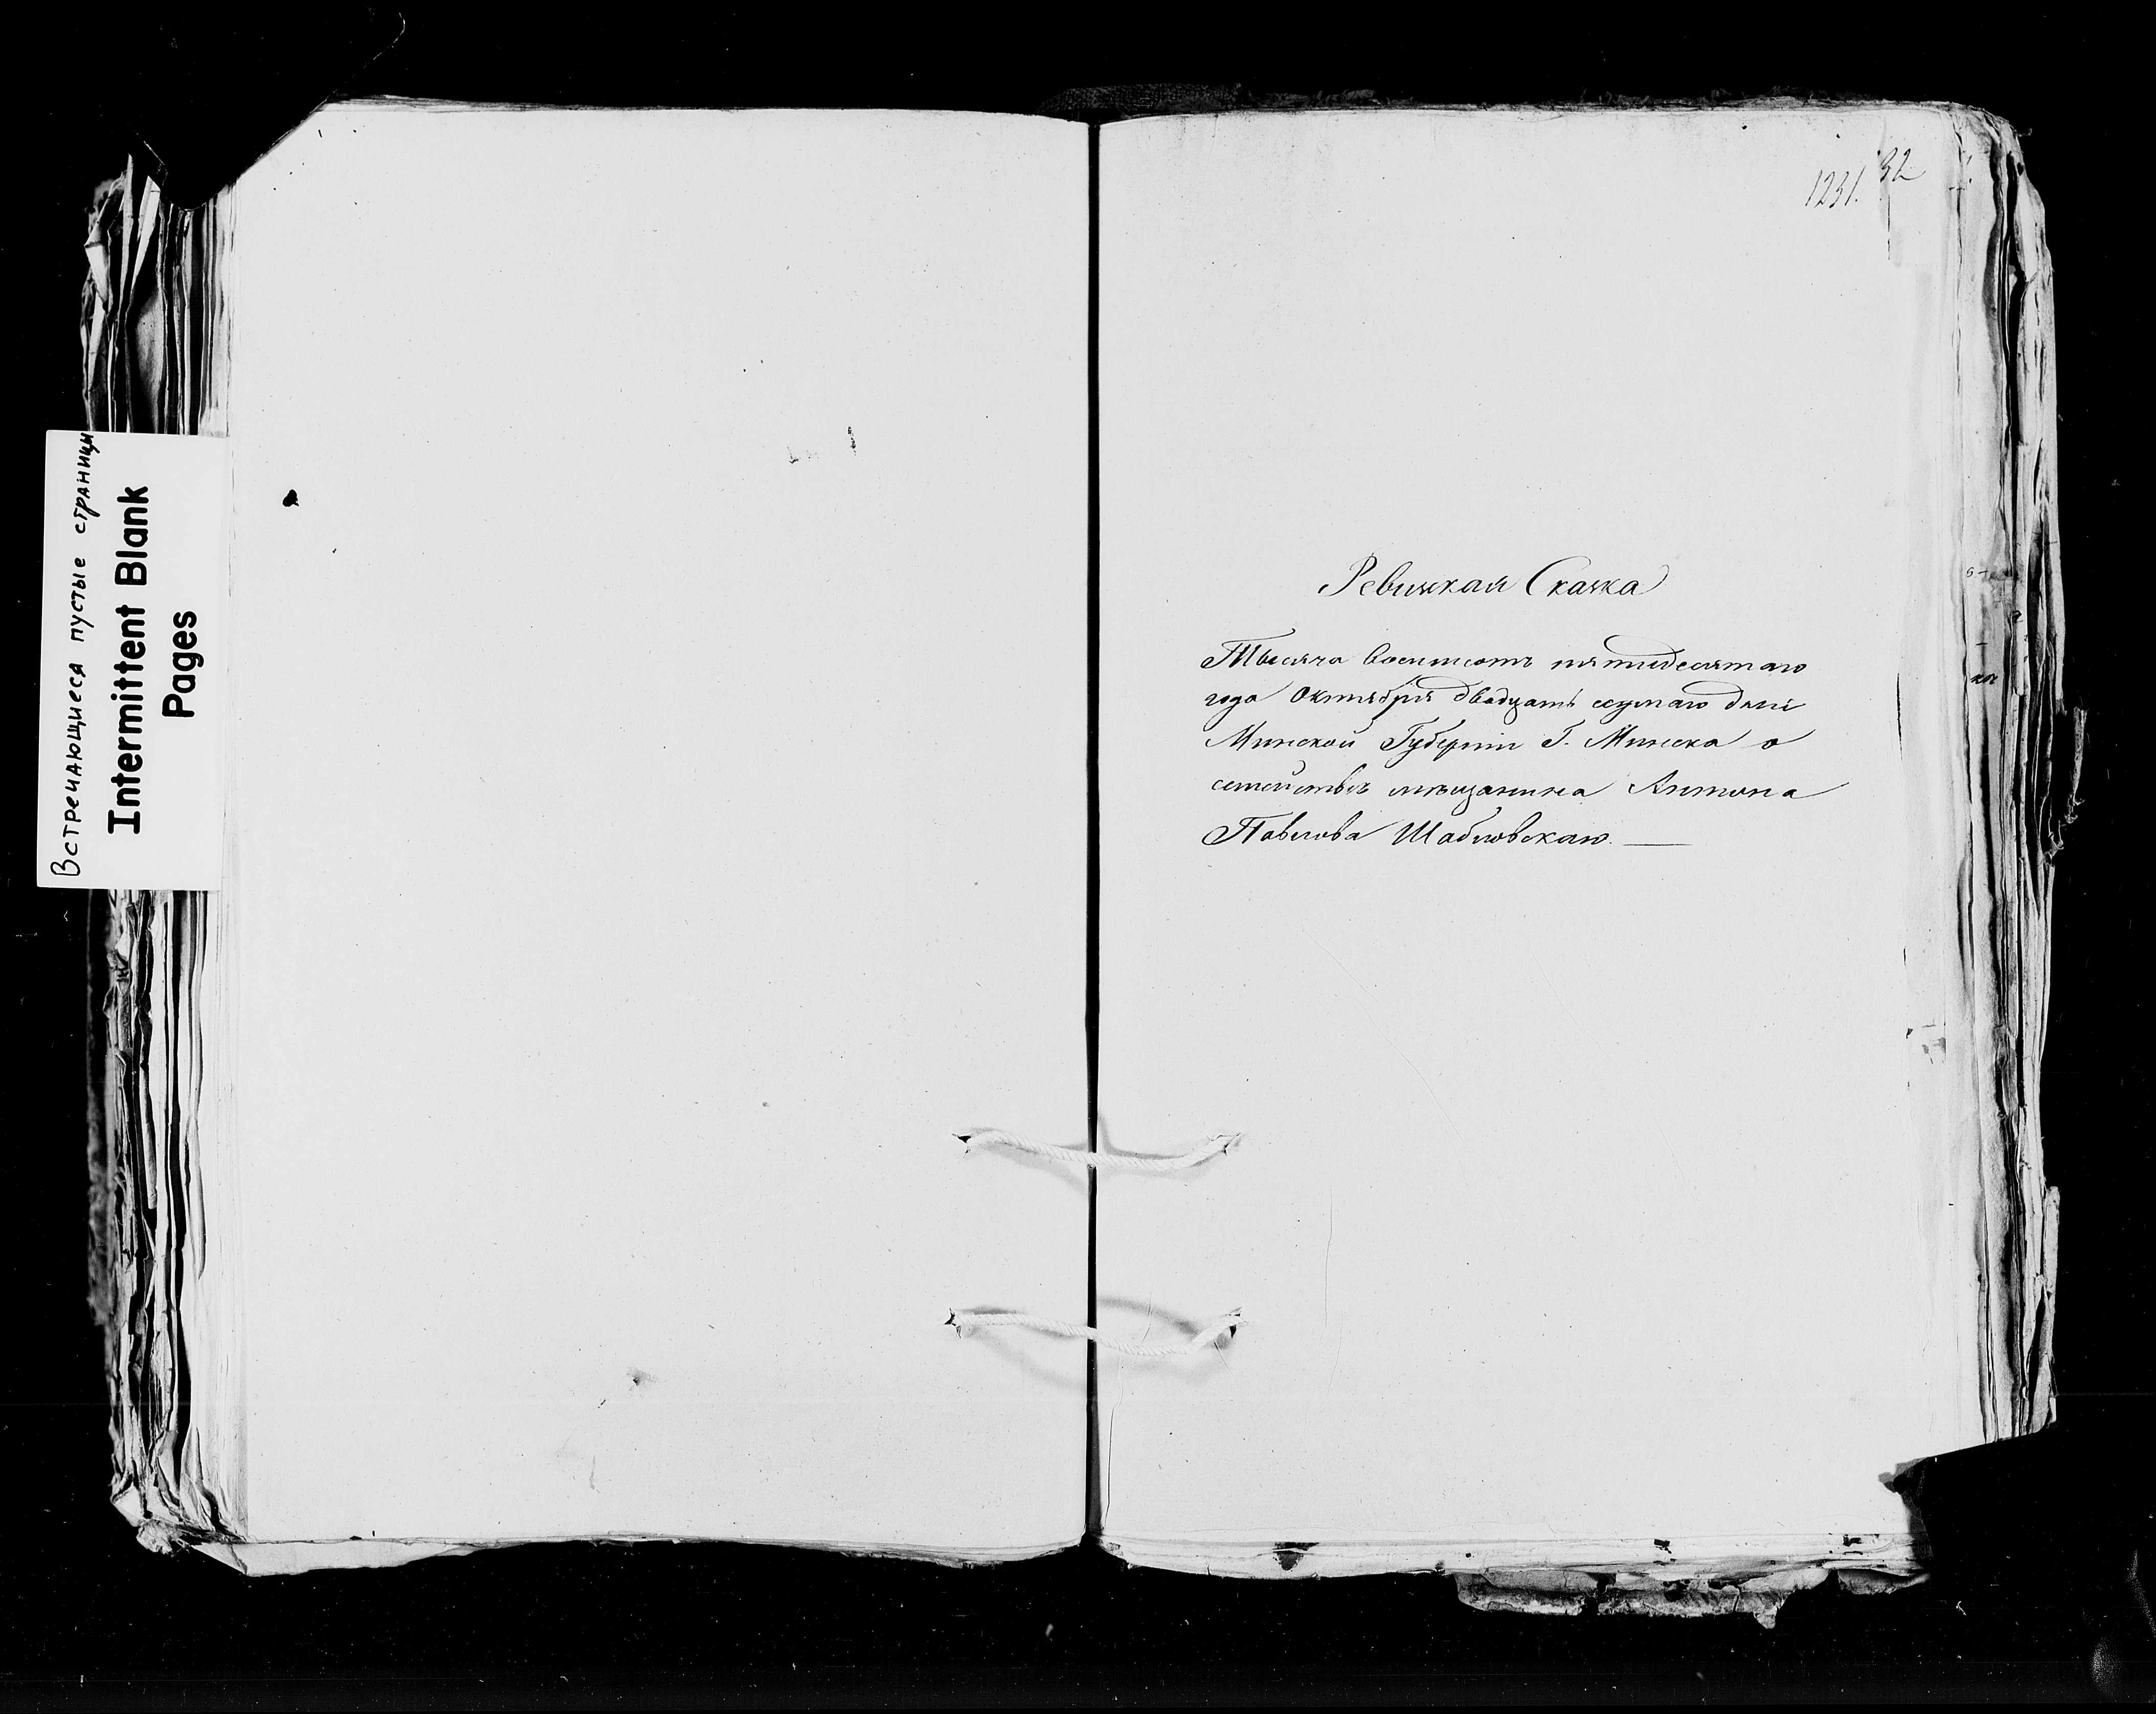 Встречающиеся пустые страницы
Intermittent Blank
Pages
1231. 32
Ревизская Сказка
Тысяча восемсотъ пятидесятаго
года Октября двадцать седмаго дня
Минской Губерніи Г. Минска о
семействѣ мѣщанина Антона
Павлова Шабловскаго.